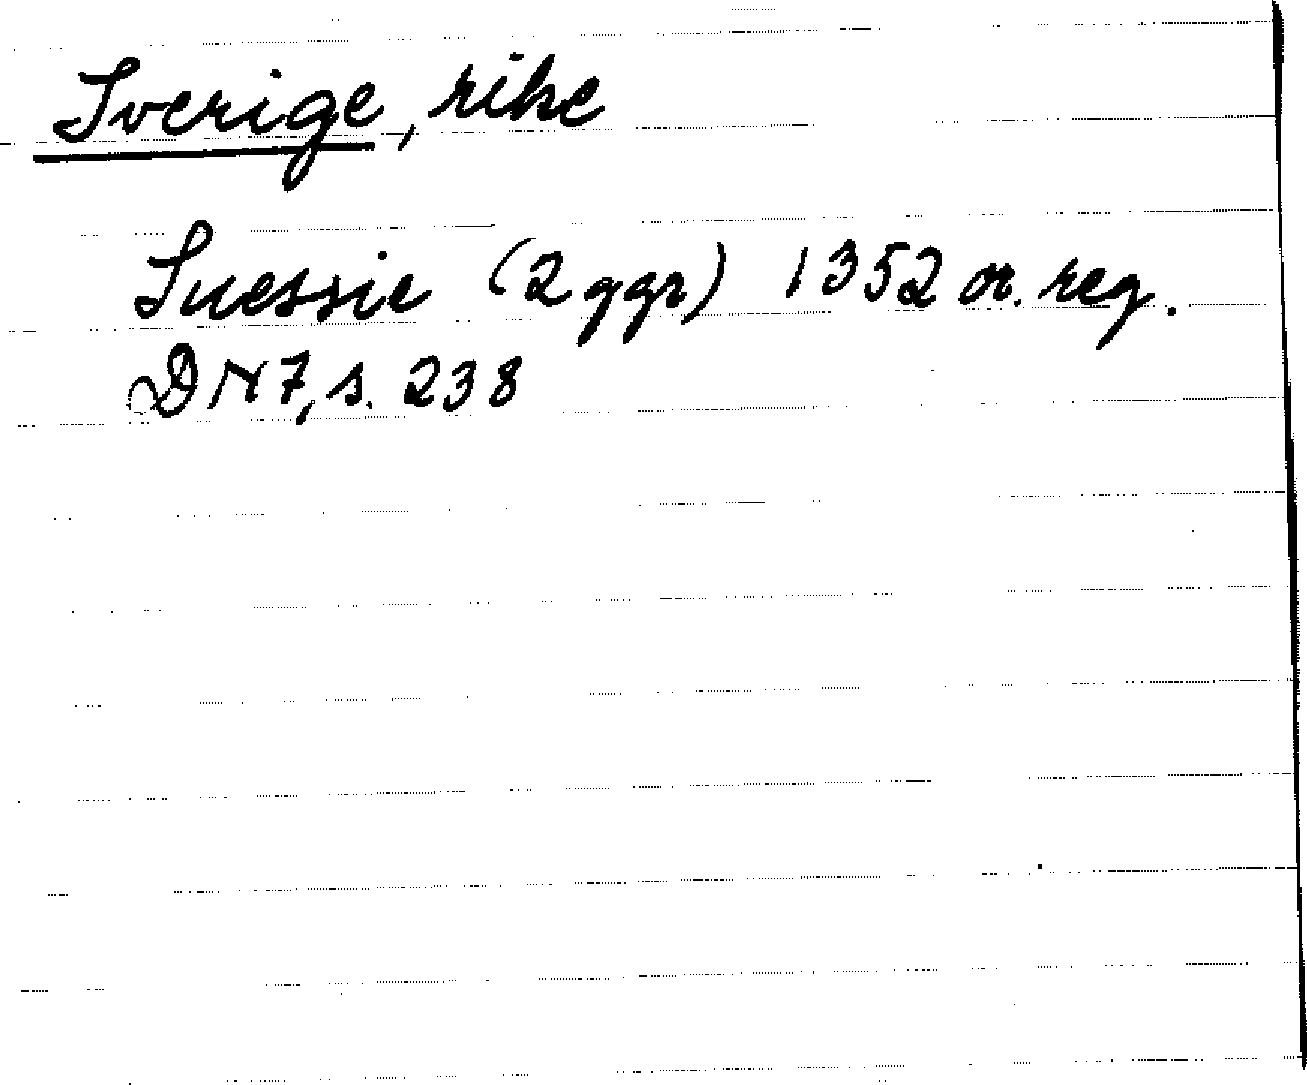 Sverige, rike
Suessie (2 ggr) 1352 or. reg.
DN 7, s. 238